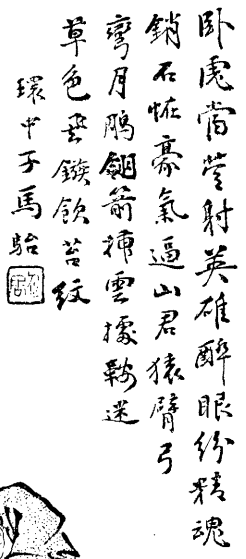 卧虎當營射英雄醉眼紛精魂
銷石恠豪氣逼山君猿臂弓
彎月鵰翎箭插雲據鞍迷
草色鏃飲苔紋
環中子馬駘